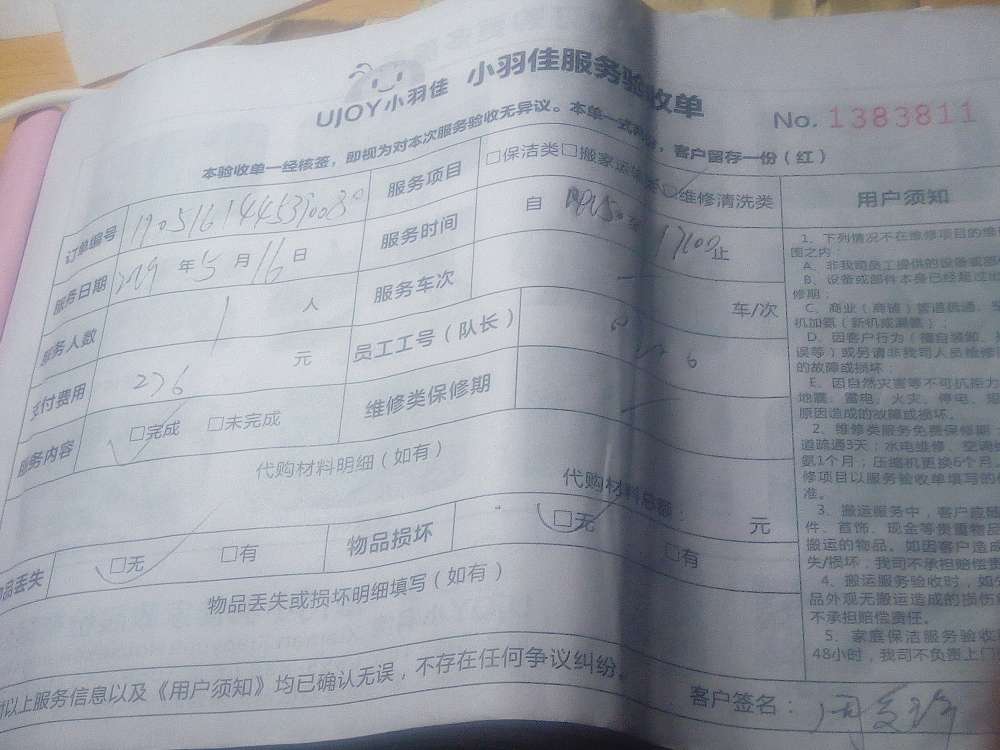 UJOY小羽佳 小羽佳服务验收单
No. 1383811
本验收单一经核签，即视为对本次服务验收无异议。本单一式两份，客户留存一份（红）
订单编号 服务项目 □保洁类□搬家运输类□维修清洗类
服务日期 2019 年 5 月 16 日 服务时间 自 至 17:00 止
服务人数 1 人 服务车次 车/次
支付费用 276 元 员工工号（队长）
服务内容 □完成 □未完成 维修类保修期
代购材料明细（如有）
代购材料总额： 元
物品丢失 □无 □有 物品损坏 □无 □有
物品丢失或损坏明细填写（如有）
对以上服务信息以及《用户须知》均已确认无误，不存在任何争议纠纷。
客户签名：
用户须知
1、下列情况不在维修项目的维
围之内：
A、非我司员工提供的设备或部
B、设备或部件本身已经超过
修期；
C、商业（商铺）管道疏通、
机加氨（新机或漏氨）；
D、因客户行为（擅自装卸、
误等）或另请非我司人员维修
的故障或损坏；
E、因自然灾害等不可抗拒力
地震、雷电、火灾、停电、
原因造成的故障或损坏。
2、维修类服务免费保修期：
道疏通3天；水电维修、空调
氨1个月；压缩机更换6个月
修项目以服务验收单填写的
准。
3、搬运服务中，客户应
件、首饰、现金等贵重物品
搬运的物品。如因客户造成
失/损坏，我司不承担赔偿责
4、搬运服务验收时，如
品外观无搬运造成的损伤
不承担赔偿责任。
5、家庭保洁服务验收
48小时，我司不负责上门